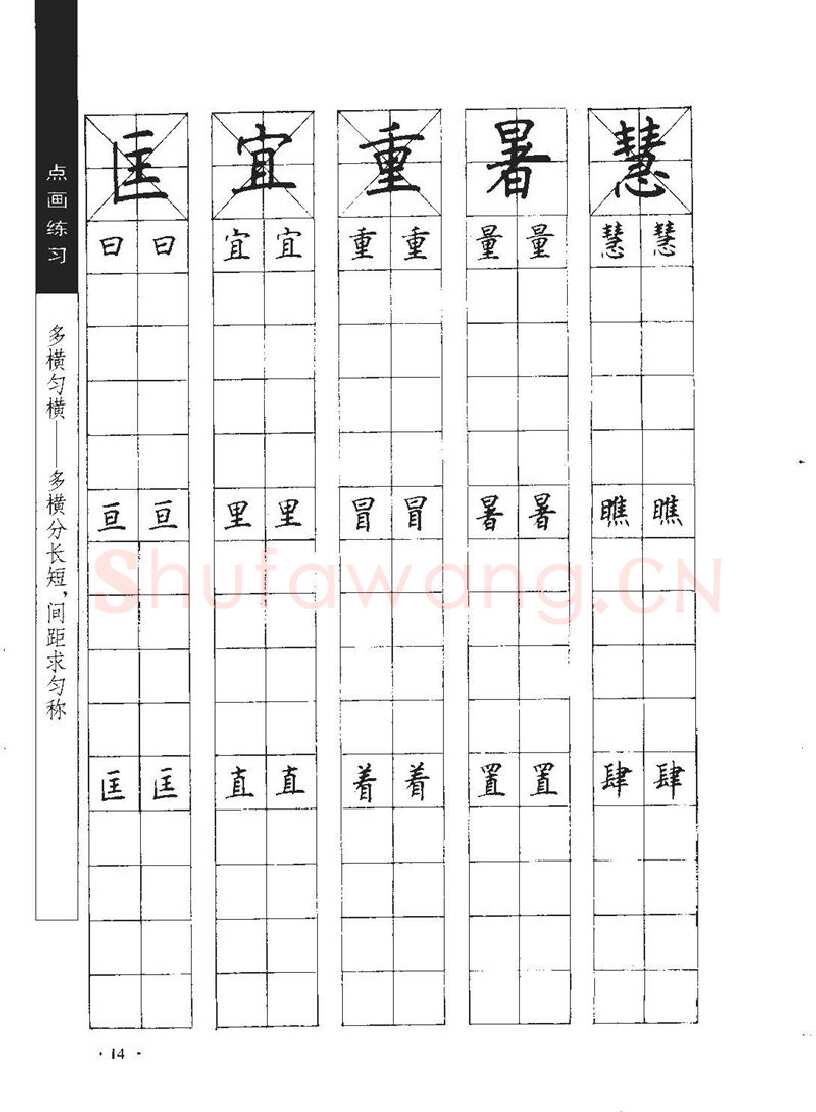 点画练习
多横匀横——多横分长短，间距求匀称
匡 宜 重 暑 慧
曰 曰 宜 宜 重 重 量 量 慧 慧
亘 亘 里 里 冒 冒 暑 暑 瞧 瞧
匡 匡 直 直 着 着 置 置 肆 肆
Shufawang.CN
· 14 ·